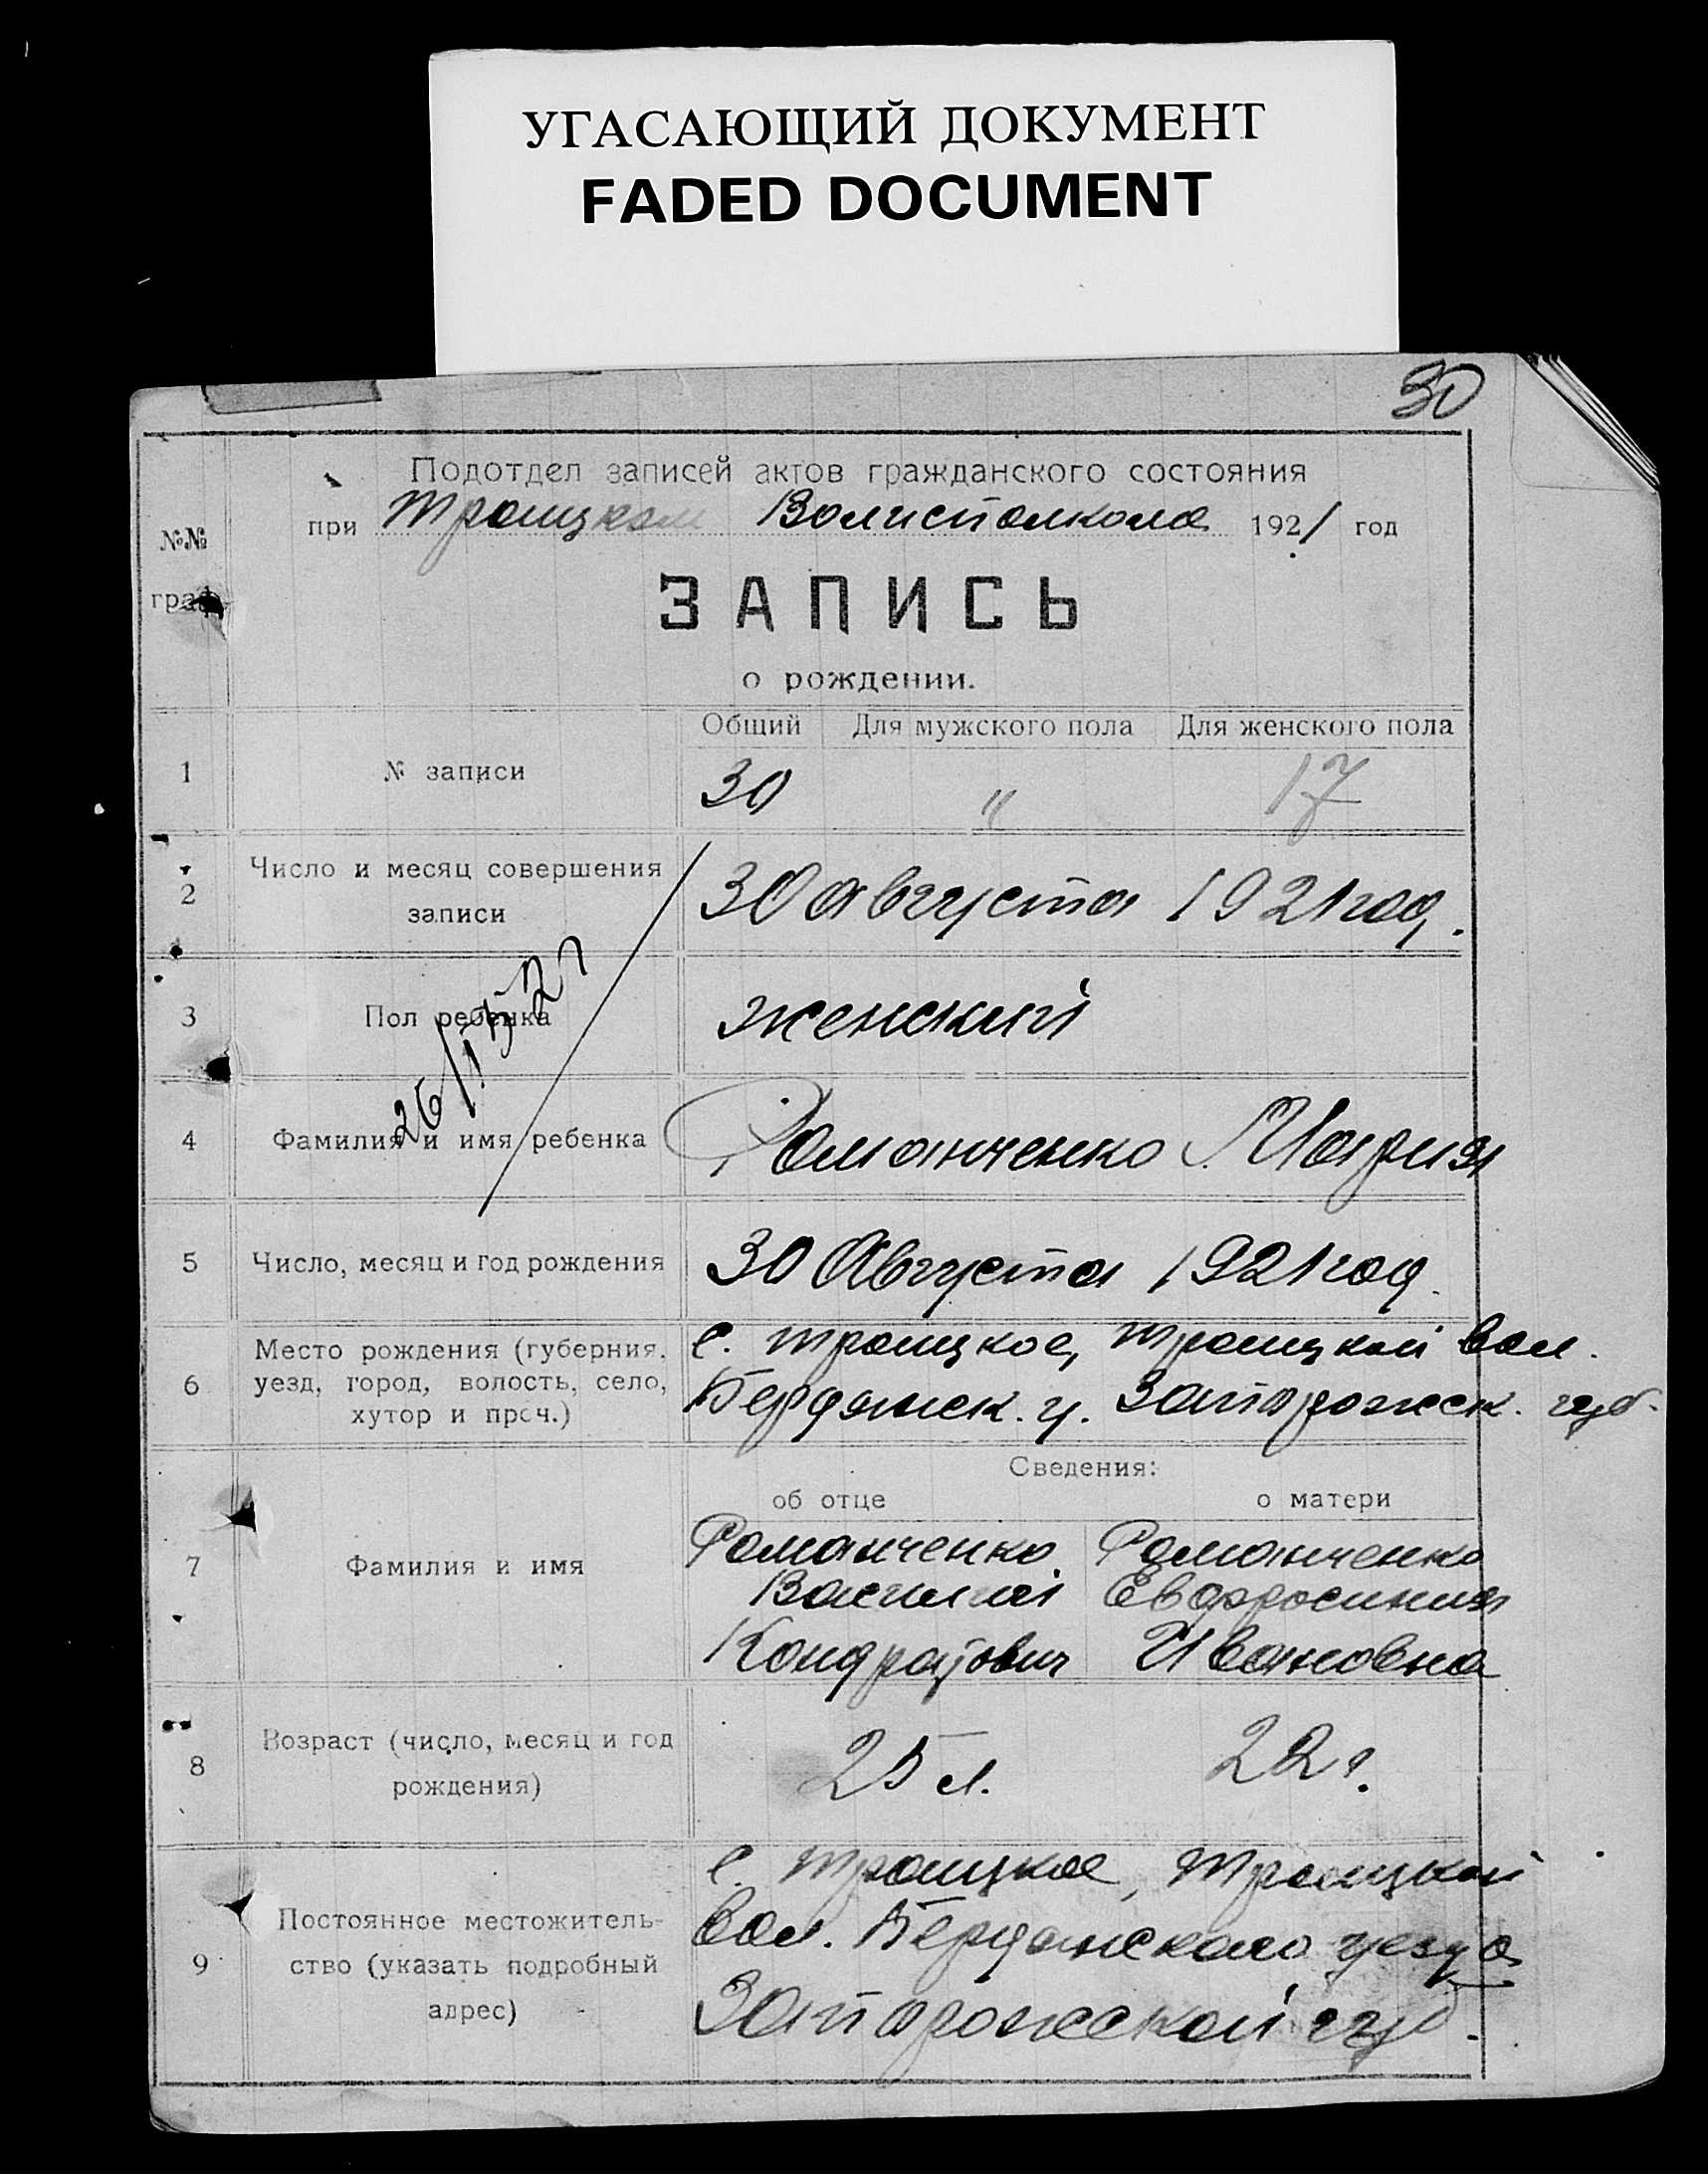 УГАСАЮЩИЙ ДОКУМЕНТ
FADED DOCUMENT
30
Подотдел записей актов гражданского состояния
при Троицком Волисполкома 1921 год
№№
граф
ЗАПИСЬ
о рождении.
Общий Для мужского пола Для женского пола
1 № записи 30 " 17
2 Число и месяц совершения
записи
30 августа 1921 год.
3 Пол ребенка женский
4 Фамилия и имя ребенка Романченко Мария
5 Число, месяц и год рождения 30 Августа 1921 год.
6 Место рождения (губерния,
уезд, город, волость, село,
хутор и проч.)
с. Троицкое, Троицкой вол.
Бердянск. у. Запорожск. губ.
Сведения:
об отце о матери
7 Фамилия и имя
Романченко Романченко
Василий Евфросиния
Кондратович Ивановна
8 Возраст (число, месяц и год
рождения)
25 л. 22 г.
9 Постоянное местожитель-
ство (указать подробный
адрес)
с. Троицкое, Троицкой
вол. Бердянского уезда
Запорожской губ.